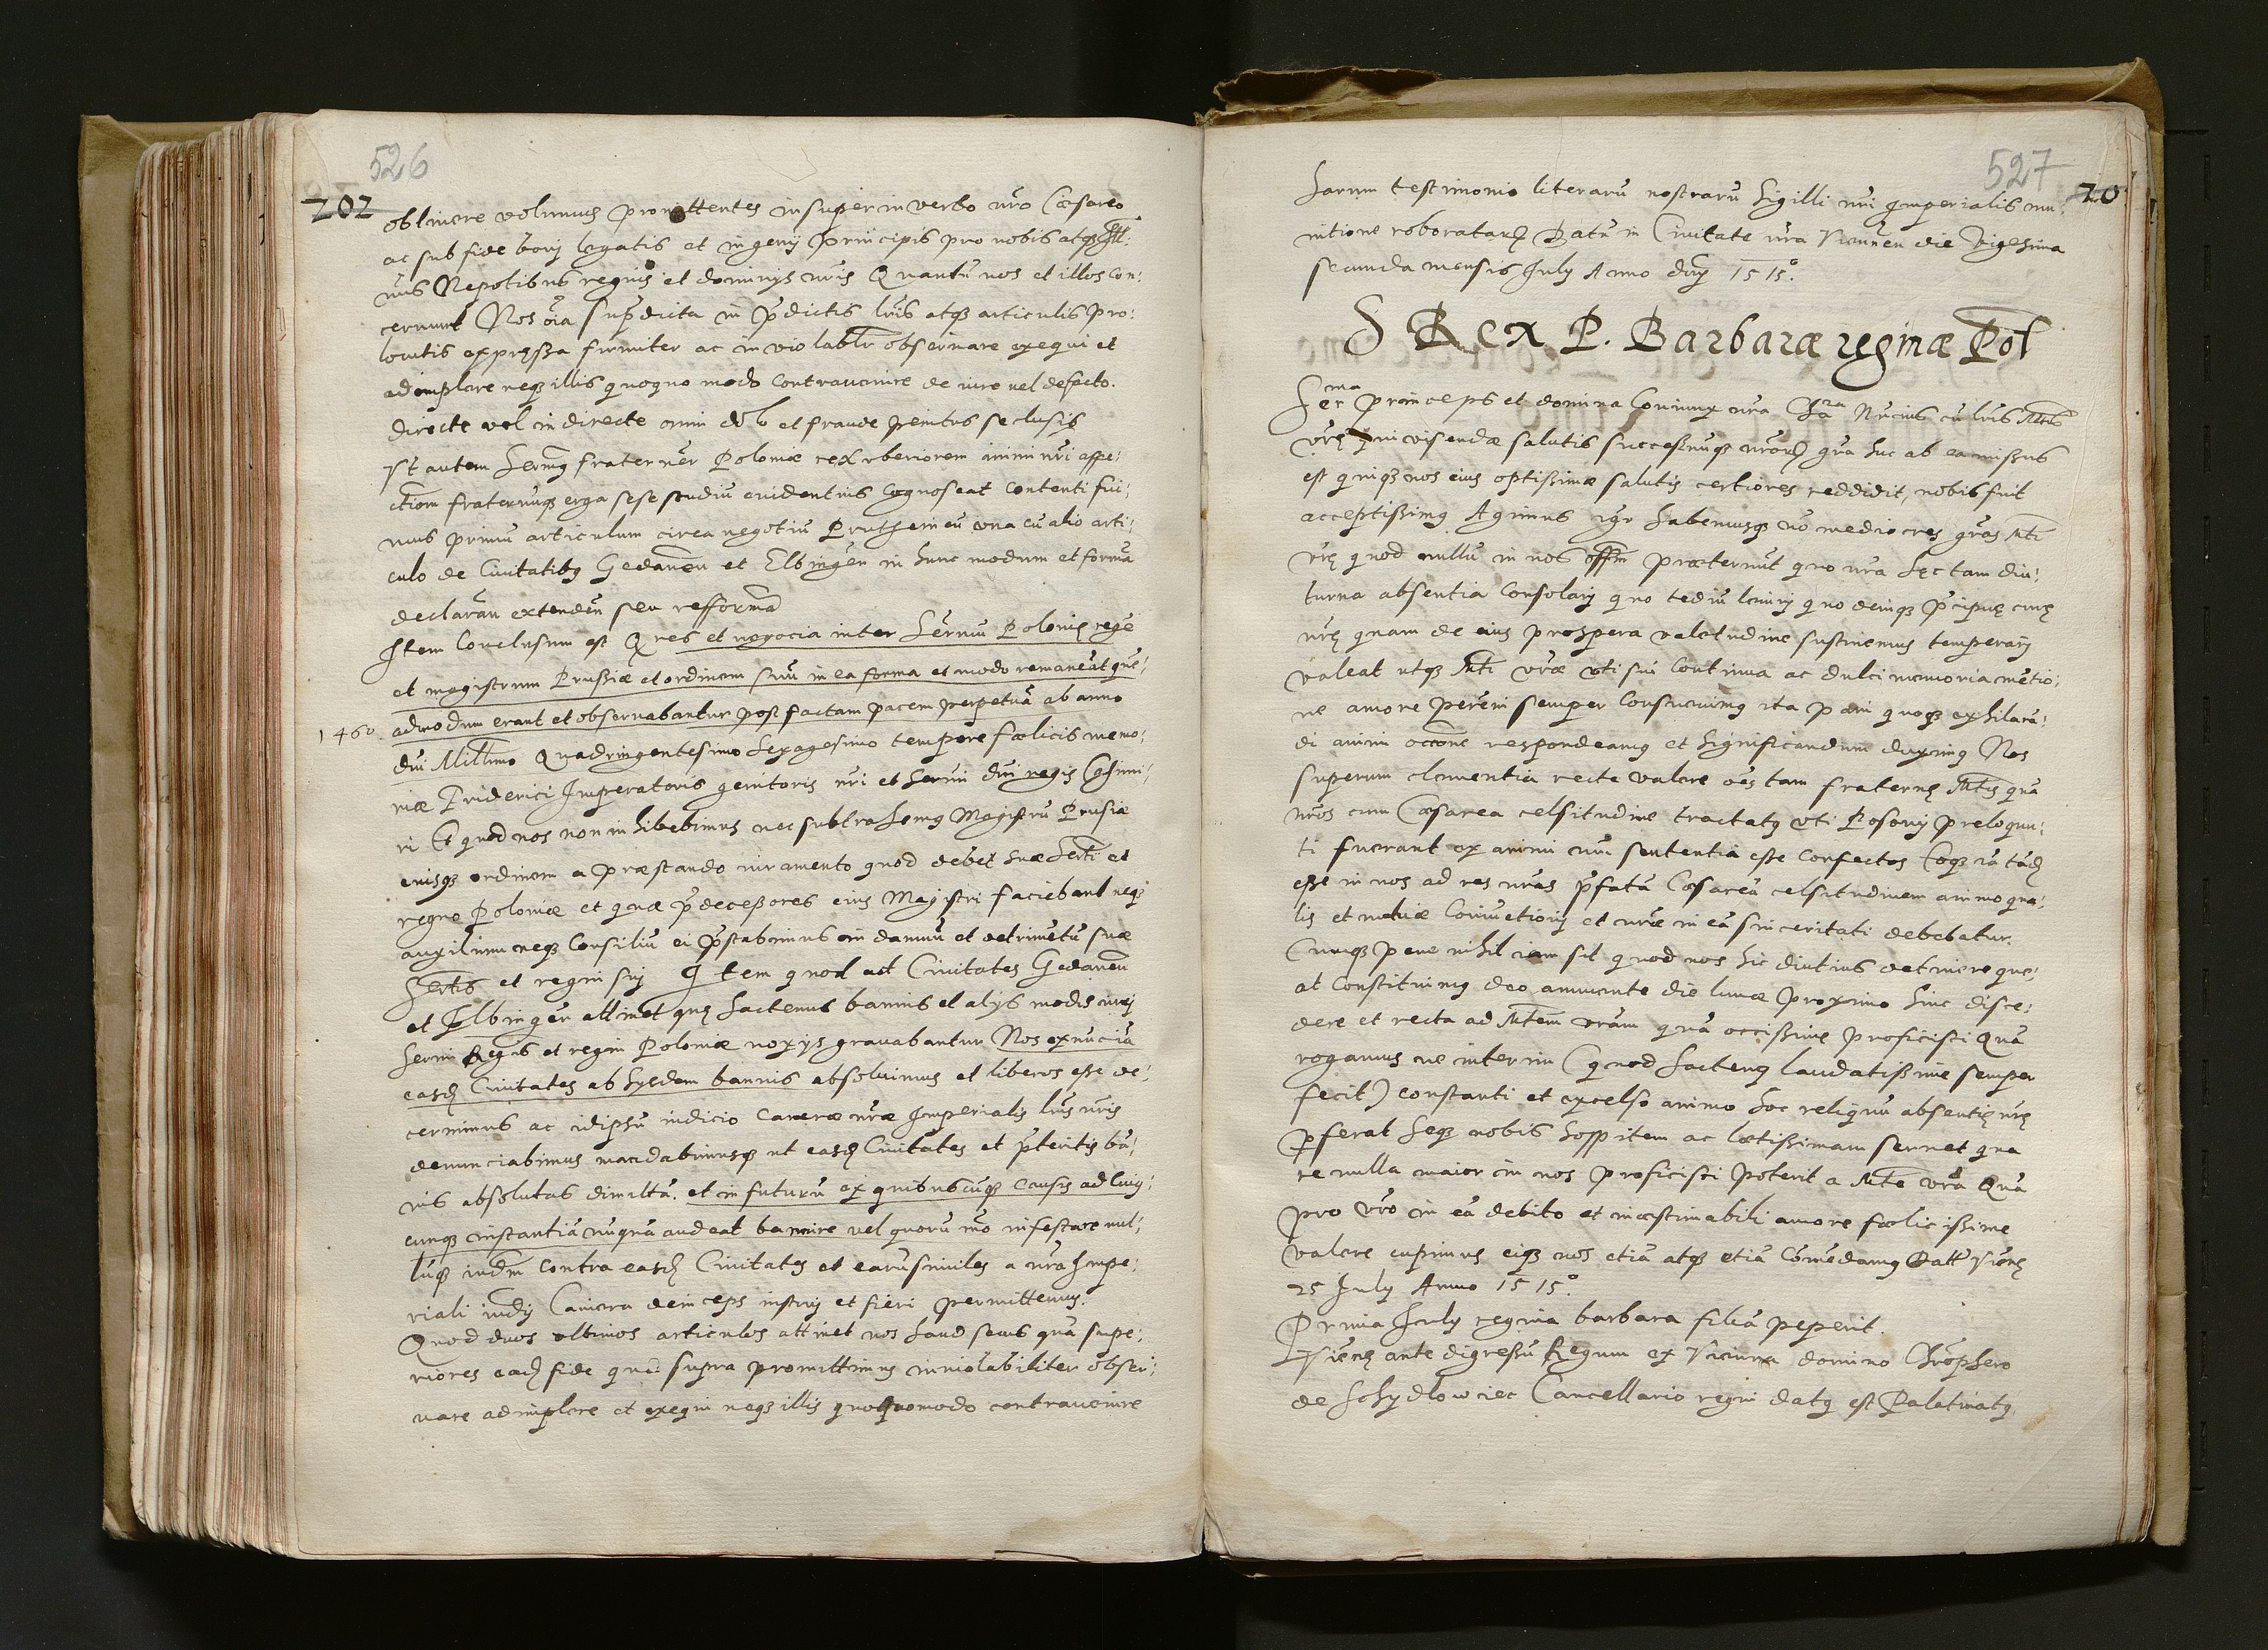 526
202
obtinere volumus promittentes insuper in verbo nr̃o Cæsareo
ac sub fide bonj legatis et ingenij principis pro nobis atq̃
nr̃is Nepotibus regnis et dominijs nr̃is Quantũ nos et illos con:
cernunt Nos õia supradicta in p̃dictis lr̃is atq̃ articulis pro:
loquitis expręssa firmiter ac inviolablr̃ observare exequi et
adimplere neq̃ illis quoquo modo contravenire de iure vel de facto.
directe vel indirecte omni dolo et fraude penitus seclusis
Vt autem Sermg frater nr̃er Poloniæ rex vberiorem animi nr̃i affe:
ctiom̃ fraternũq̃ erga sese studiũ evidentius cognoscat contenti fui:
mus primũ articulum circa negotiũ Pruthenicũ vna cũ alio arti:
culo de Civitatibg Gedanẽn et Elbingẽn in hunc modum et formã
declarañ extendeñ seu refformañ
Item Conclusum est Q res et negocia inter Sermũ Polonię regẽ
et magistrum Prussiæ et ordinem suũ in ea forma et modo remaneãt que:
admodum erant et observabantur post factam pacem perpetuã ab anno
1460. dñi Millmo Quadringentesimo Sexagesimo tempore fœlicis memo:
riæ Friderici Imperatoris genitoris nr̃i et Sermi dñi regis Casimi:
ri Et quod nos non inhibebimus nec subtrahemg Magistrũ Prusiæ
eiusq̃ ordinem a præstando iuramento quod debet suæ Serti et
regno Poloniæ et quæ p̃decessores eius Magistri faciebant neq̃
auxilium neq̃ Consiliũ ei p̃stabimus in damnũ et detrimẽtũ suæ
Sertis et regni suj Item quod ad Civitates Gedanẽn
et Elbingẽn attinet quę hactenus bannis et alijs modis curj
Sermi Regis et regni Poloniæ noxijs gravabantur Nos ex nũc iã
easd̃ Civitates ab hysdem bannis absoluimus et liberos esse de:
cernimus ac idipsũ iudicio Cameræ nr̃æ Imperialis lr̃is nr̃is
denunciabimus mandabimusq̃ ut easd̃ Civitates et p̃teritis bã:
nis absolutas dimittã. et in futurũ ex quibuscũq̃ causis ad cuig:
cunq̃ instantiã nũquã audeat bannire vel quovis mõ infestare nul:
lũq̃ iudm̃ contra easd̃ Civitates et earũ similes a nr̃a Impe:
riali iudij Camera deinceps instrui et fieri permittemus.
Quod duos vltimos articulos attinet nos haud secus quã supe:
riores ead̃ fide quã supra promittimus inviolabiliter obser:
vare adimplere et exequi neq̃ illis quoquomodo contravenire
527
20
harum testimonio literarũ nostrarũ Sigilli nr̃i Imperialis mu:
nitione roboratarũ Datũ in Civitate nr̃a Vienneñ die vigesima
secunda mensis July Anno dnj 1515°.
S Rex P. Barbaræ reginæ Pol
Ser ma princeps et domina Coniunx nr̃a Cha ra Nũcius cũ lr̃is Mtis
vr̃ę invisendæ salutis successũuq̃ nr̃or̃ grã huc ab ea missus
est quiq̃ nos eius optissimæ salutis certiores reddidit, nobis fuit
acceptissimg Agimus igr̃ habemusq̃ nõ mediocres grãs Mti
vr̃ę quod nullũ in nos offm̃ prætermit̃ quo nr̃a hęc tam diu:
turna absentia Consolarj quo tediũ lenirj quo deniq̃ p̃cipuę curę
nr̃ę quam de eius prospera valetudine sustinemus temperarj
valeat utq̃ Mti vr̃æ vti sui continua ac dulci memoria mẽtio:
ne amore perẽni semper consuevimg ita p ani quoq̃ exhilarã:
di animi occõne respondeamg et significandum duximg Nos
superum clementia recte valere oẽs tam fraternę Mtis quã
nr̃os cum Cæsarea celsitudine tractatg vti Posonij preloqu:
ti fuerant ex animi nr̃i sententia esse confectos Eoq̃ iã tãd̃
esse in nos ad res nr̃as p̃fatã Cæsareã celsitudinem animo qua:
lis et mutuæ Coniũctionj et nr̃æ in eã sinceritati debebatur.
Cumq̃ pene nihil iam sit quod nos hic diutius detinere que:
at constituimg deo annuente die lunæ proximo hinc disce:
dere et recta ad Mtem vram quã occissime proficisci Quã
rogamus ne interim (quod hacteng laudatissime semper
fecit) constanti et excelso animo hoc reliquũ absentię nr̃ę
p̃ferat seq̃ nobis hospitem ac lætissimam servet qua
re nulla maior in nos proficisci poterit a Mte vr̃a Quã
pro vr̃o in eã debito et inæstimabili amore fœlicissime
valere cupimus eiq̃ nos etiã atq̃ etiã Cõmẽdamg Datt Vienę
25 July Anno 1515°.
Prima July regina barbara filiã peperit.
Vienę ante digressũ Regum ex Vienna domino Chrophero
de Schydlowiec Cancellario regni datg est Palatinatg